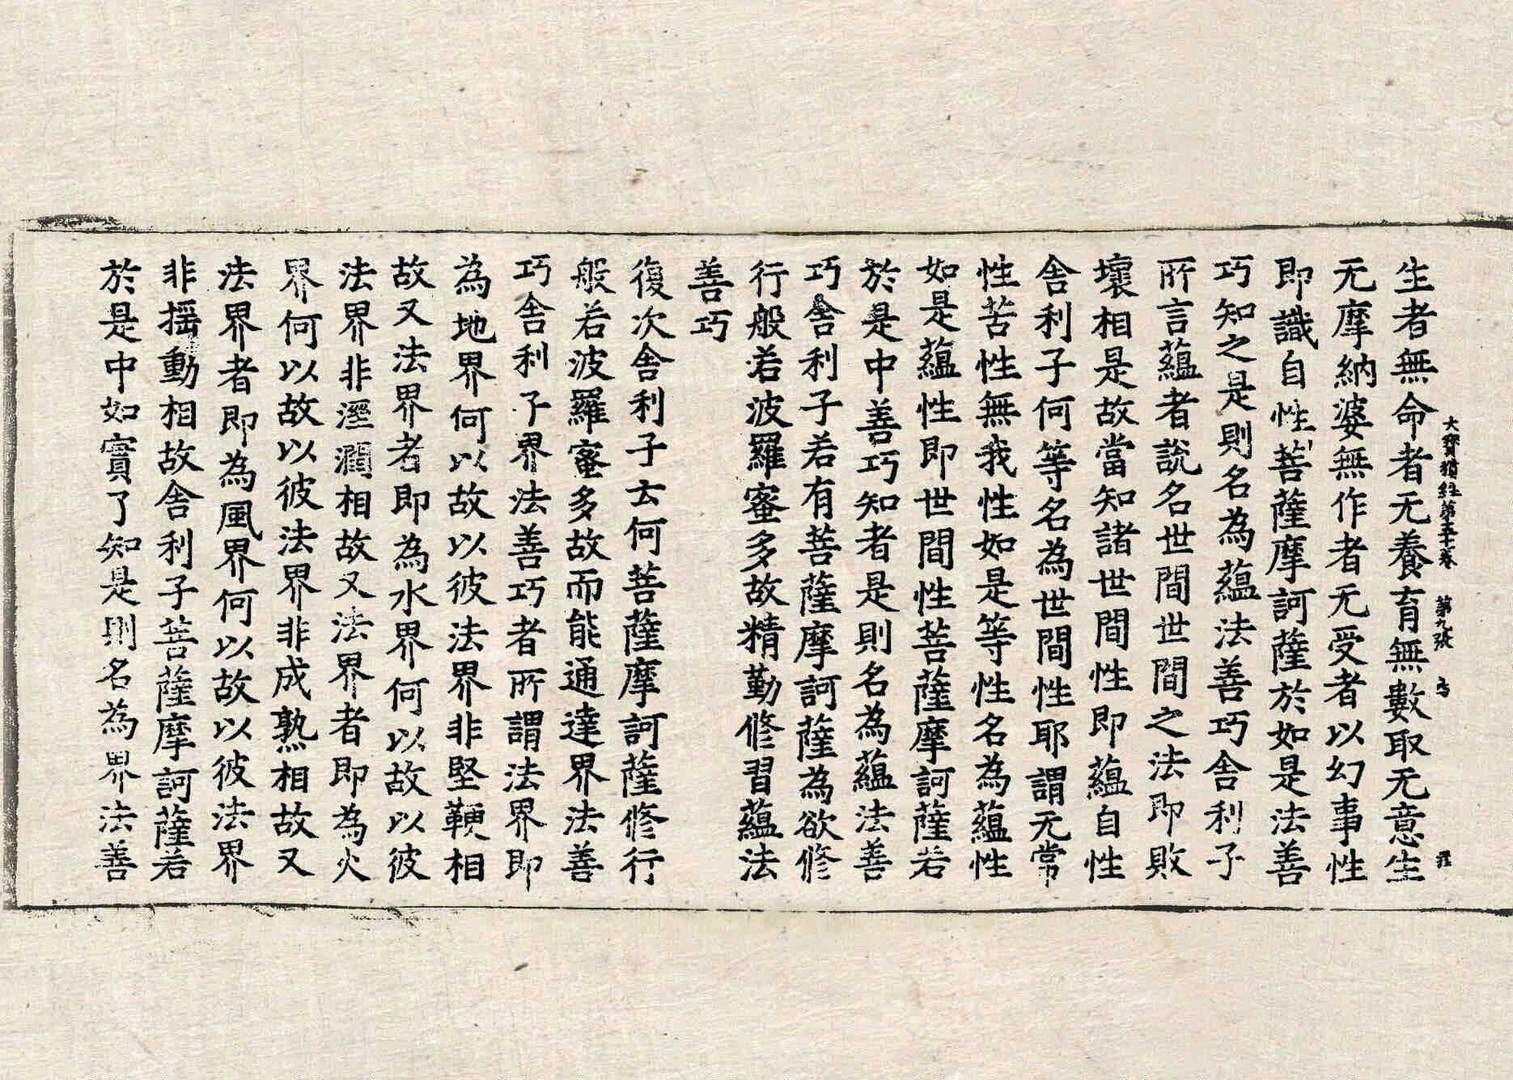 大寶積經第卷 第九張
生者無命者无養育無數取无意生
无摩納婆無作者无受者以幻事性
即識自性菩薩摩訶薩於如是法善
巧知之是則名為蘊法善巧舍利子
所言蘊者說名世間世間之法即敗
壞相是故當知諸世間性即蘊自性
舍利子何等名為世間性耶謂无常
性苦性無我性如是等性名為蘊性
如是蘊性即世間性菩薩摩訶薩若
於是中善巧知者是則名為蘊法善
巧舍利子若有菩薩摩訶薩為欲修
行般若波羅蜜多故精勤修習蘊法
善巧
復次舍利子云何菩薩摩訶薩修行
般若波羅蜜多故而能通達界法善
巧舍利子界法善巧者所謂法界即
為地界何以故以彼法界非堅鞕相
故又法界者即為水界何以故以彼
法界非溼潤相故又法界者即為火
界何以故以彼法界非成熟相故又
法界者即為風界何以故以彼法界
非搖動相故舍利子菩薩摩訶薩若
於是中如實了知是則名為界法善